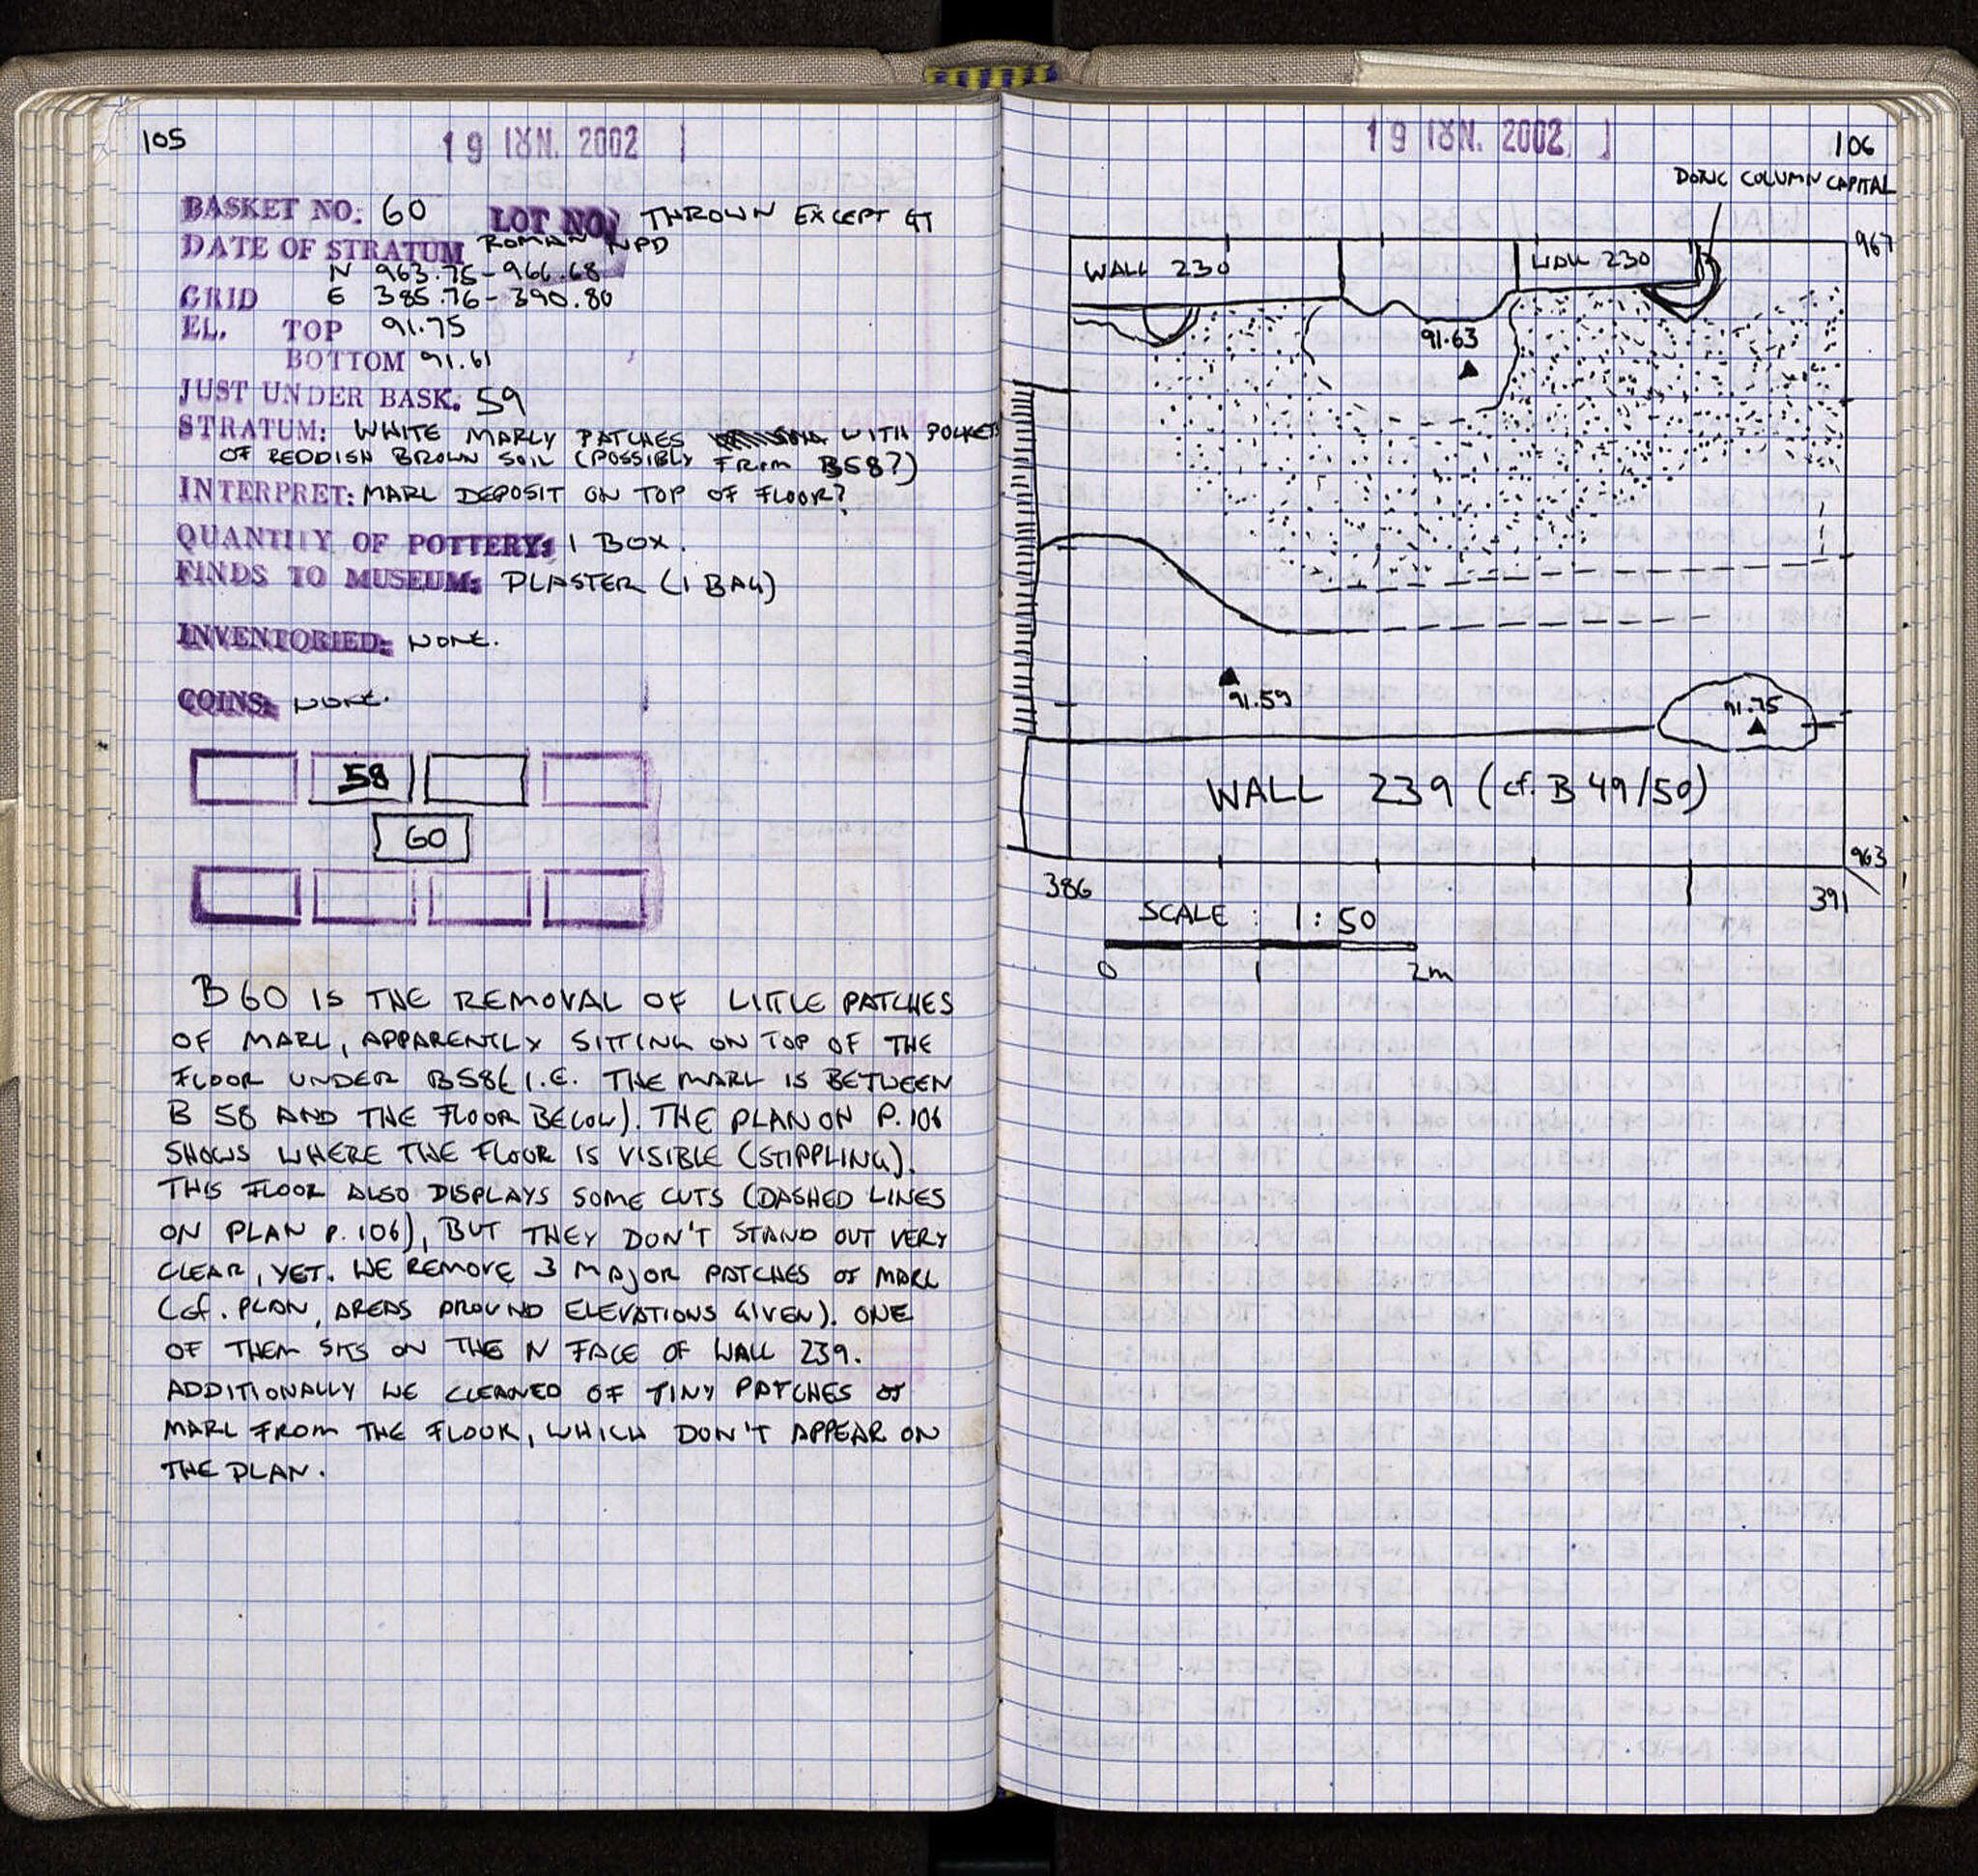 105
19 ΙΟΥΝ. 2002
BASKET NO: 60 LOT NO: THROWN EXCEPT GT
DATE OF STRATUM ROMAN NPD
N 963.75-966.68
GRID E 385.76-390.80
EL. TOP 91.75
BOTTOM 91.61
JUST UNDER BASK: 59
STRATUM: WHITE MARLY PATCHES WITH POCKETS
OF REDDISH BROWN SOIL (POSSIBLY FROM B58?)
INTERPRET: MARL DEPOSIT ON TOP OF FLOOR?
QUANTITY OF POTTERY: 1 BOX.
FINDS TO MUSEUM: PLASTER (1 BAG)
INVENTORIED: NONE.
COINS: NONE.
58
60
B60 IS THE REMOVAL OF LITTLE PATCHES
OF MARL, APPARENTLY SITTING ON TOP OF THE
FLOOR UNDER B58 (I.E. THE MARL IS BETWEEN
B 58 AND THE FLOOR BELOW). THE PLAN ON P.106
SHOWS WHERE THE FLOOR IS VISIBLE (STIPPLING).
THIS FLOOR ALSO DISPLAYS SOME CUTS (DASHED LINES
ON PLAN P.106), BUT THEY DON'T STAND OUT VERY
CLEAR, YET. WE REMOVE 3 MAJOR PATCHES OF MARL
(cf. PLAN, AREAS AROUND ELEVATIONS GIVEN). ONE
OF THEM SITS ON THE N FACE OF WALL 239.
ADDITIONALLY WE CLEANED OF TINY PATCHES OF
MARL FROM THE FLOOR, WHICH DON'T APPEAR ON
THE PLAN.
19 ΙΟΥΝ. 2002
106
DORIC COLUMN CAPITAL
967
WALL 230
WALL 230
91.63
91.59
91.75
WALL 239 (cf. B 49/50)
963
386
391
SCALE: 1:50
0 1 2m